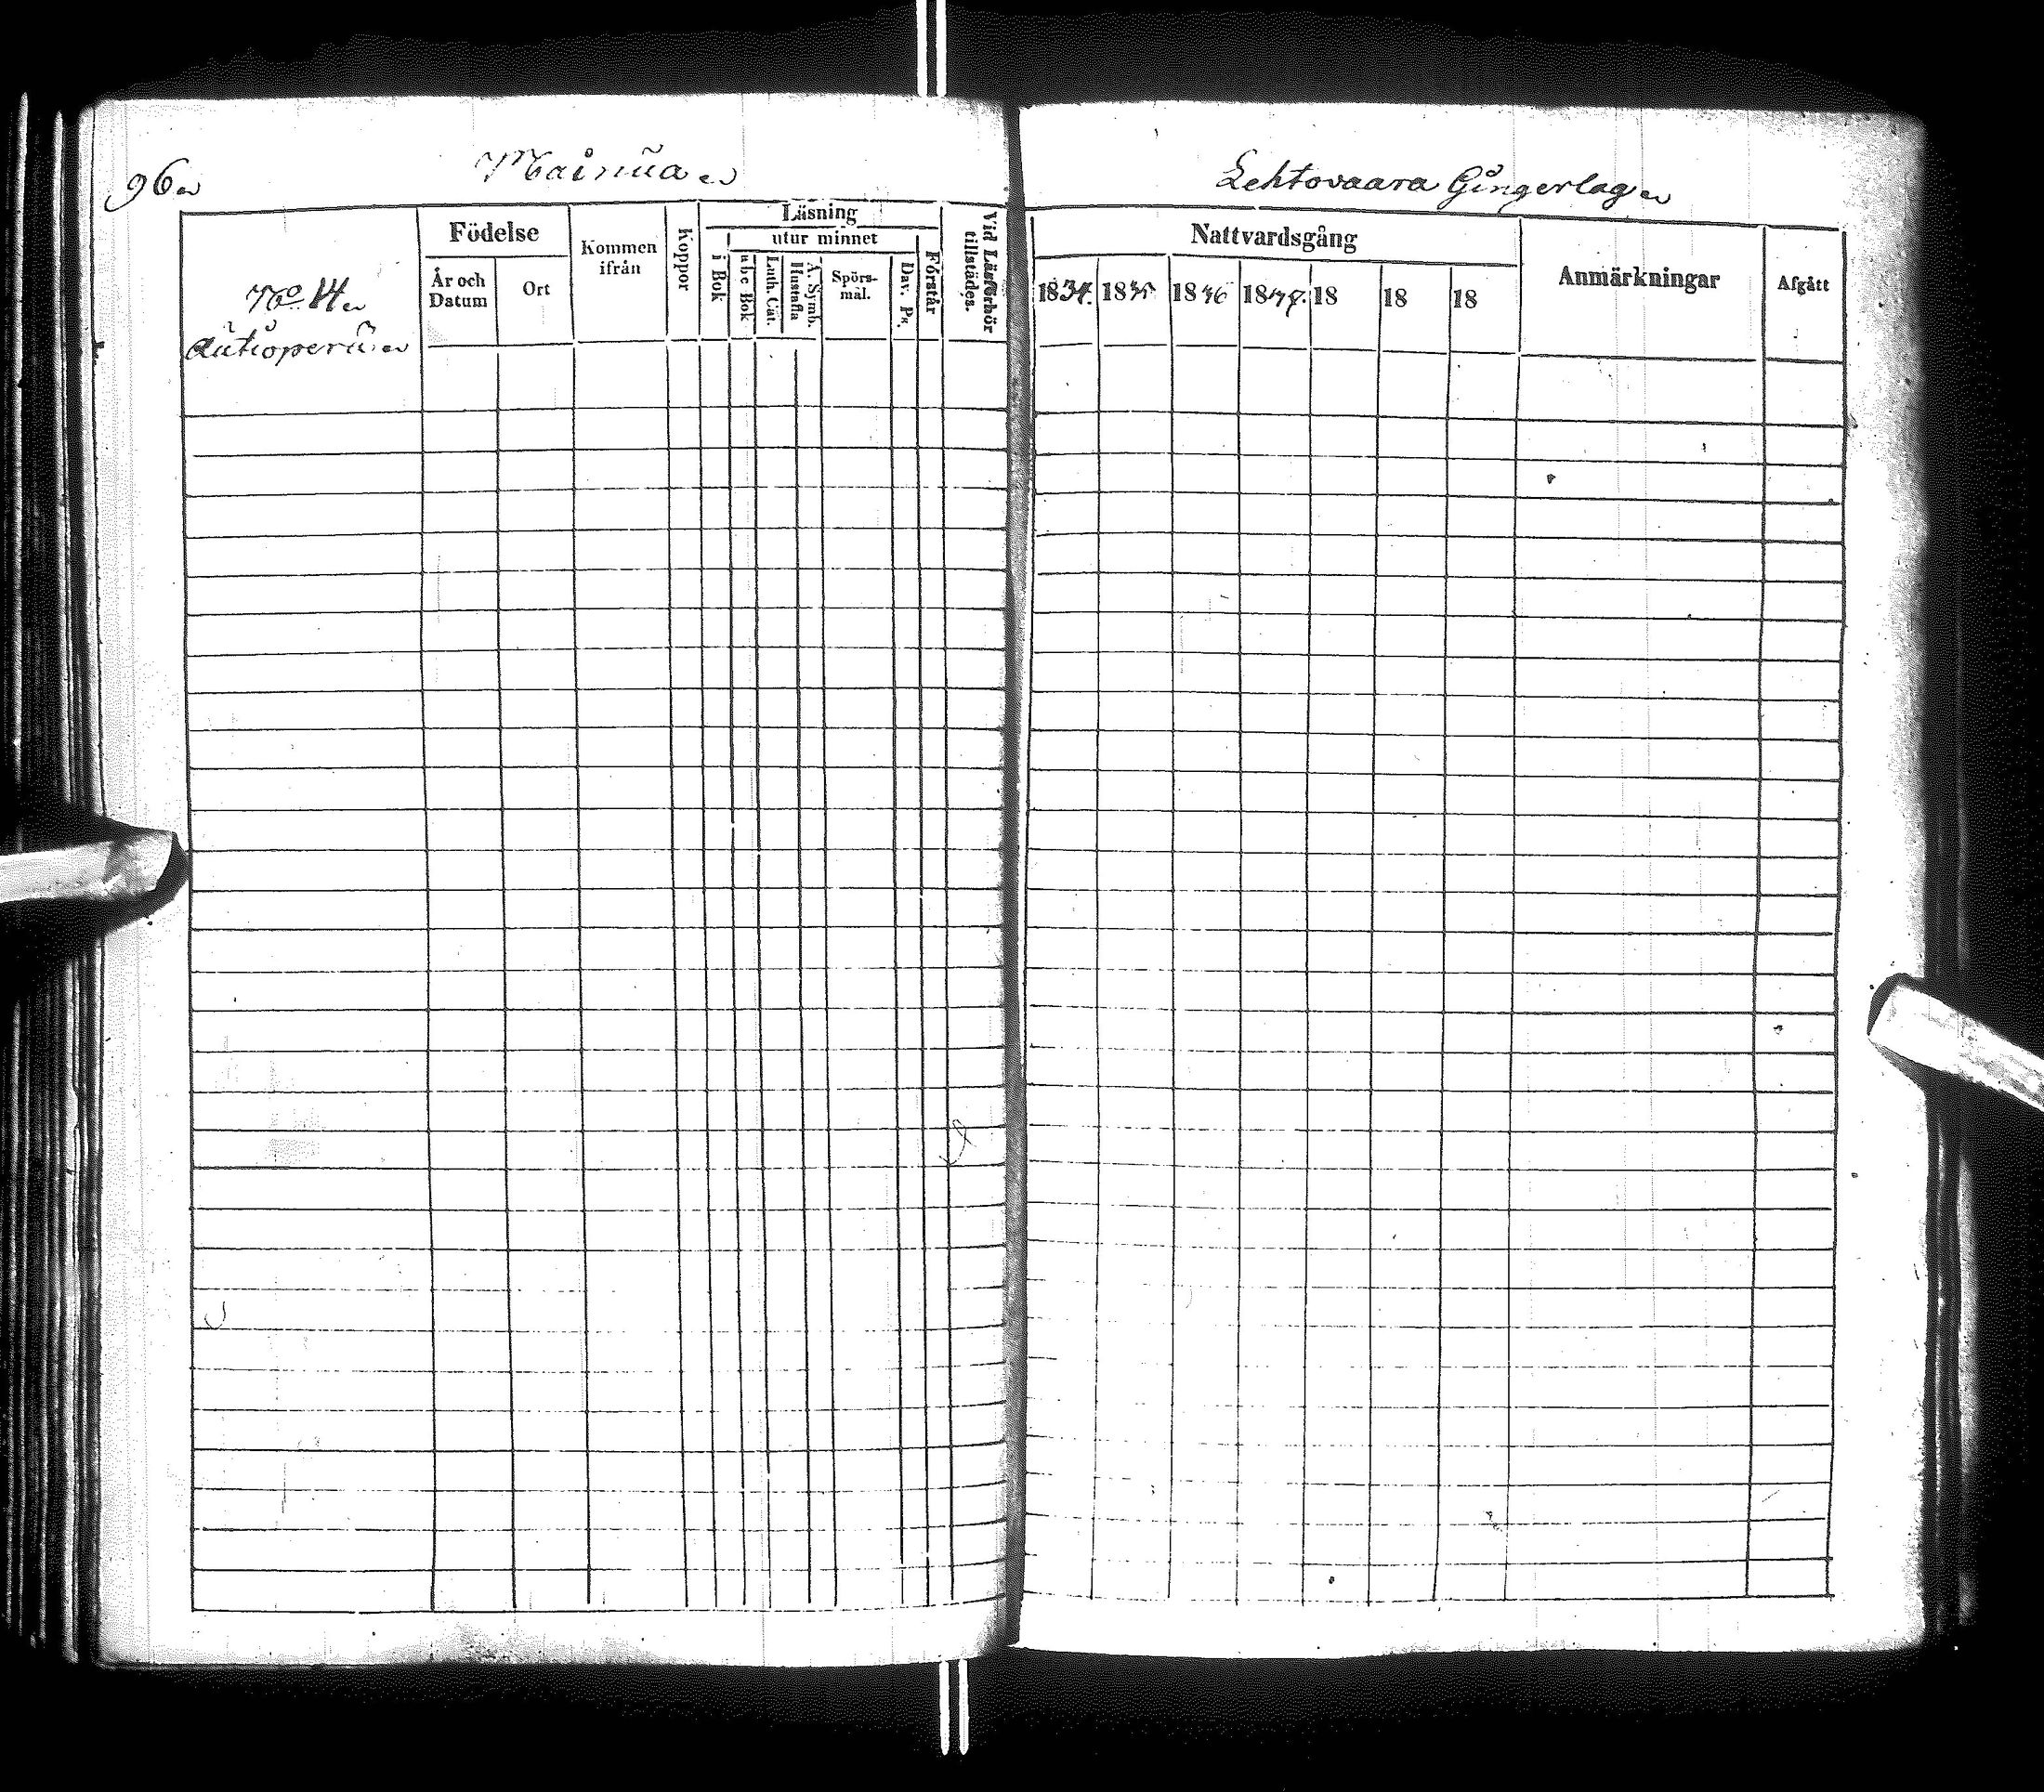 96
Mainua
Lehtovaara Gingerlag
No 14
Autioperä
Födelse
År och Datum
Ort
Kommen ifrån
Koppor
Läsning
utur minnet
i Bok
abc Bok
Luth. Cat.
Hustafla
A. Symb.
Spörsmål.
Dav. Ps.
Förstår
Vid Läsförhör tillstädes.
Nattvardsgång
1834. 1835 1836 1837. 18 18 18
Anmärkningar
Afgått